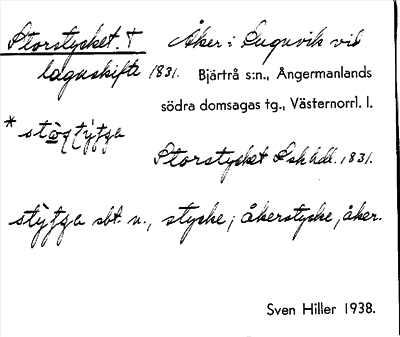 Storstycket. † Åker: Lugnvik vid
lagaskifte 1831. Bjärtrå s:n., Ångermanlands
södra domsagas tg., Västernorrl. l.
Storstycket Lskhdl. 1831.
sbt. n., stycke; åkerstycke, åker.
Sven Hiller 1938.